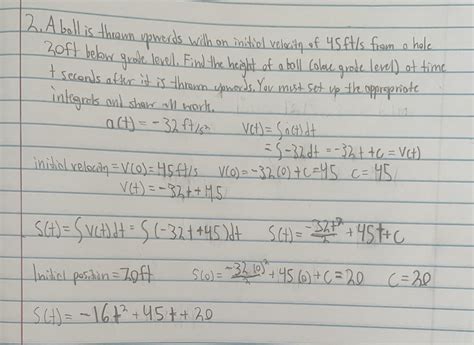 2. A ball is thrown upwards with an initial velocity of 45ft/s from a hole
20ft below grade level. Find the height of a ball (above grade level) at time
t seconds after it is thrown upwards. You must set up the appropriate
integrals and show all work.
a(t) = -32ft/s² V(t) = ∫a(t)dt
= ∫-32dt = -32t + C₁ = V(t)
initial velocity = V(0) = 45ft/s V(0) = -32(0) + C = 45 C = 45
V(t) = -32t + 45
S(t) = ∫V(t)dt = ∫(-32t + 45)dt S(t) = -32t²/2 + 45t + C
Initial position = 20ft S(0) = -32(0)²/2 + 45(0) + C = 20 C = 20
S(t) = -16t² + 45t + 20